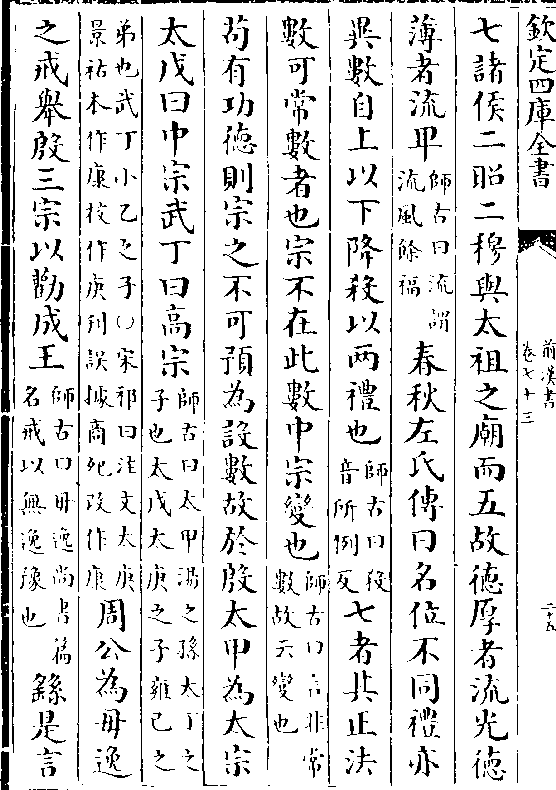 欽定四庫全書
前漢書
卷七十三
二十五
七諸侯二昭二穆與太祖之廟而五故徳厚者流光徳
薄者流卑師古曰流謂流風餘福春秋左氏傳曰名位不同禮亦
異數自上以下降殺以兩禮也師古曰殺音所例反七者其正法
數可常數者也宗不在此數中宗變也師古曰言非常數故云變也
苟有功徳則宗之不可預為設數故於殷太甲為太宗
太戊曰中宗武丁曰高宗師古曰太甲湯之孫太丁之子也太戊太庚之子雍已之
弟也武丁小乙之子○宋祁曰注文太庚景祐本作康校作庚刋誤據商紀改作康周公為毋逸
之戒舉殷三宗以勸成王師古曰毋逸尚書篇名戒以無逸豫也繇是言